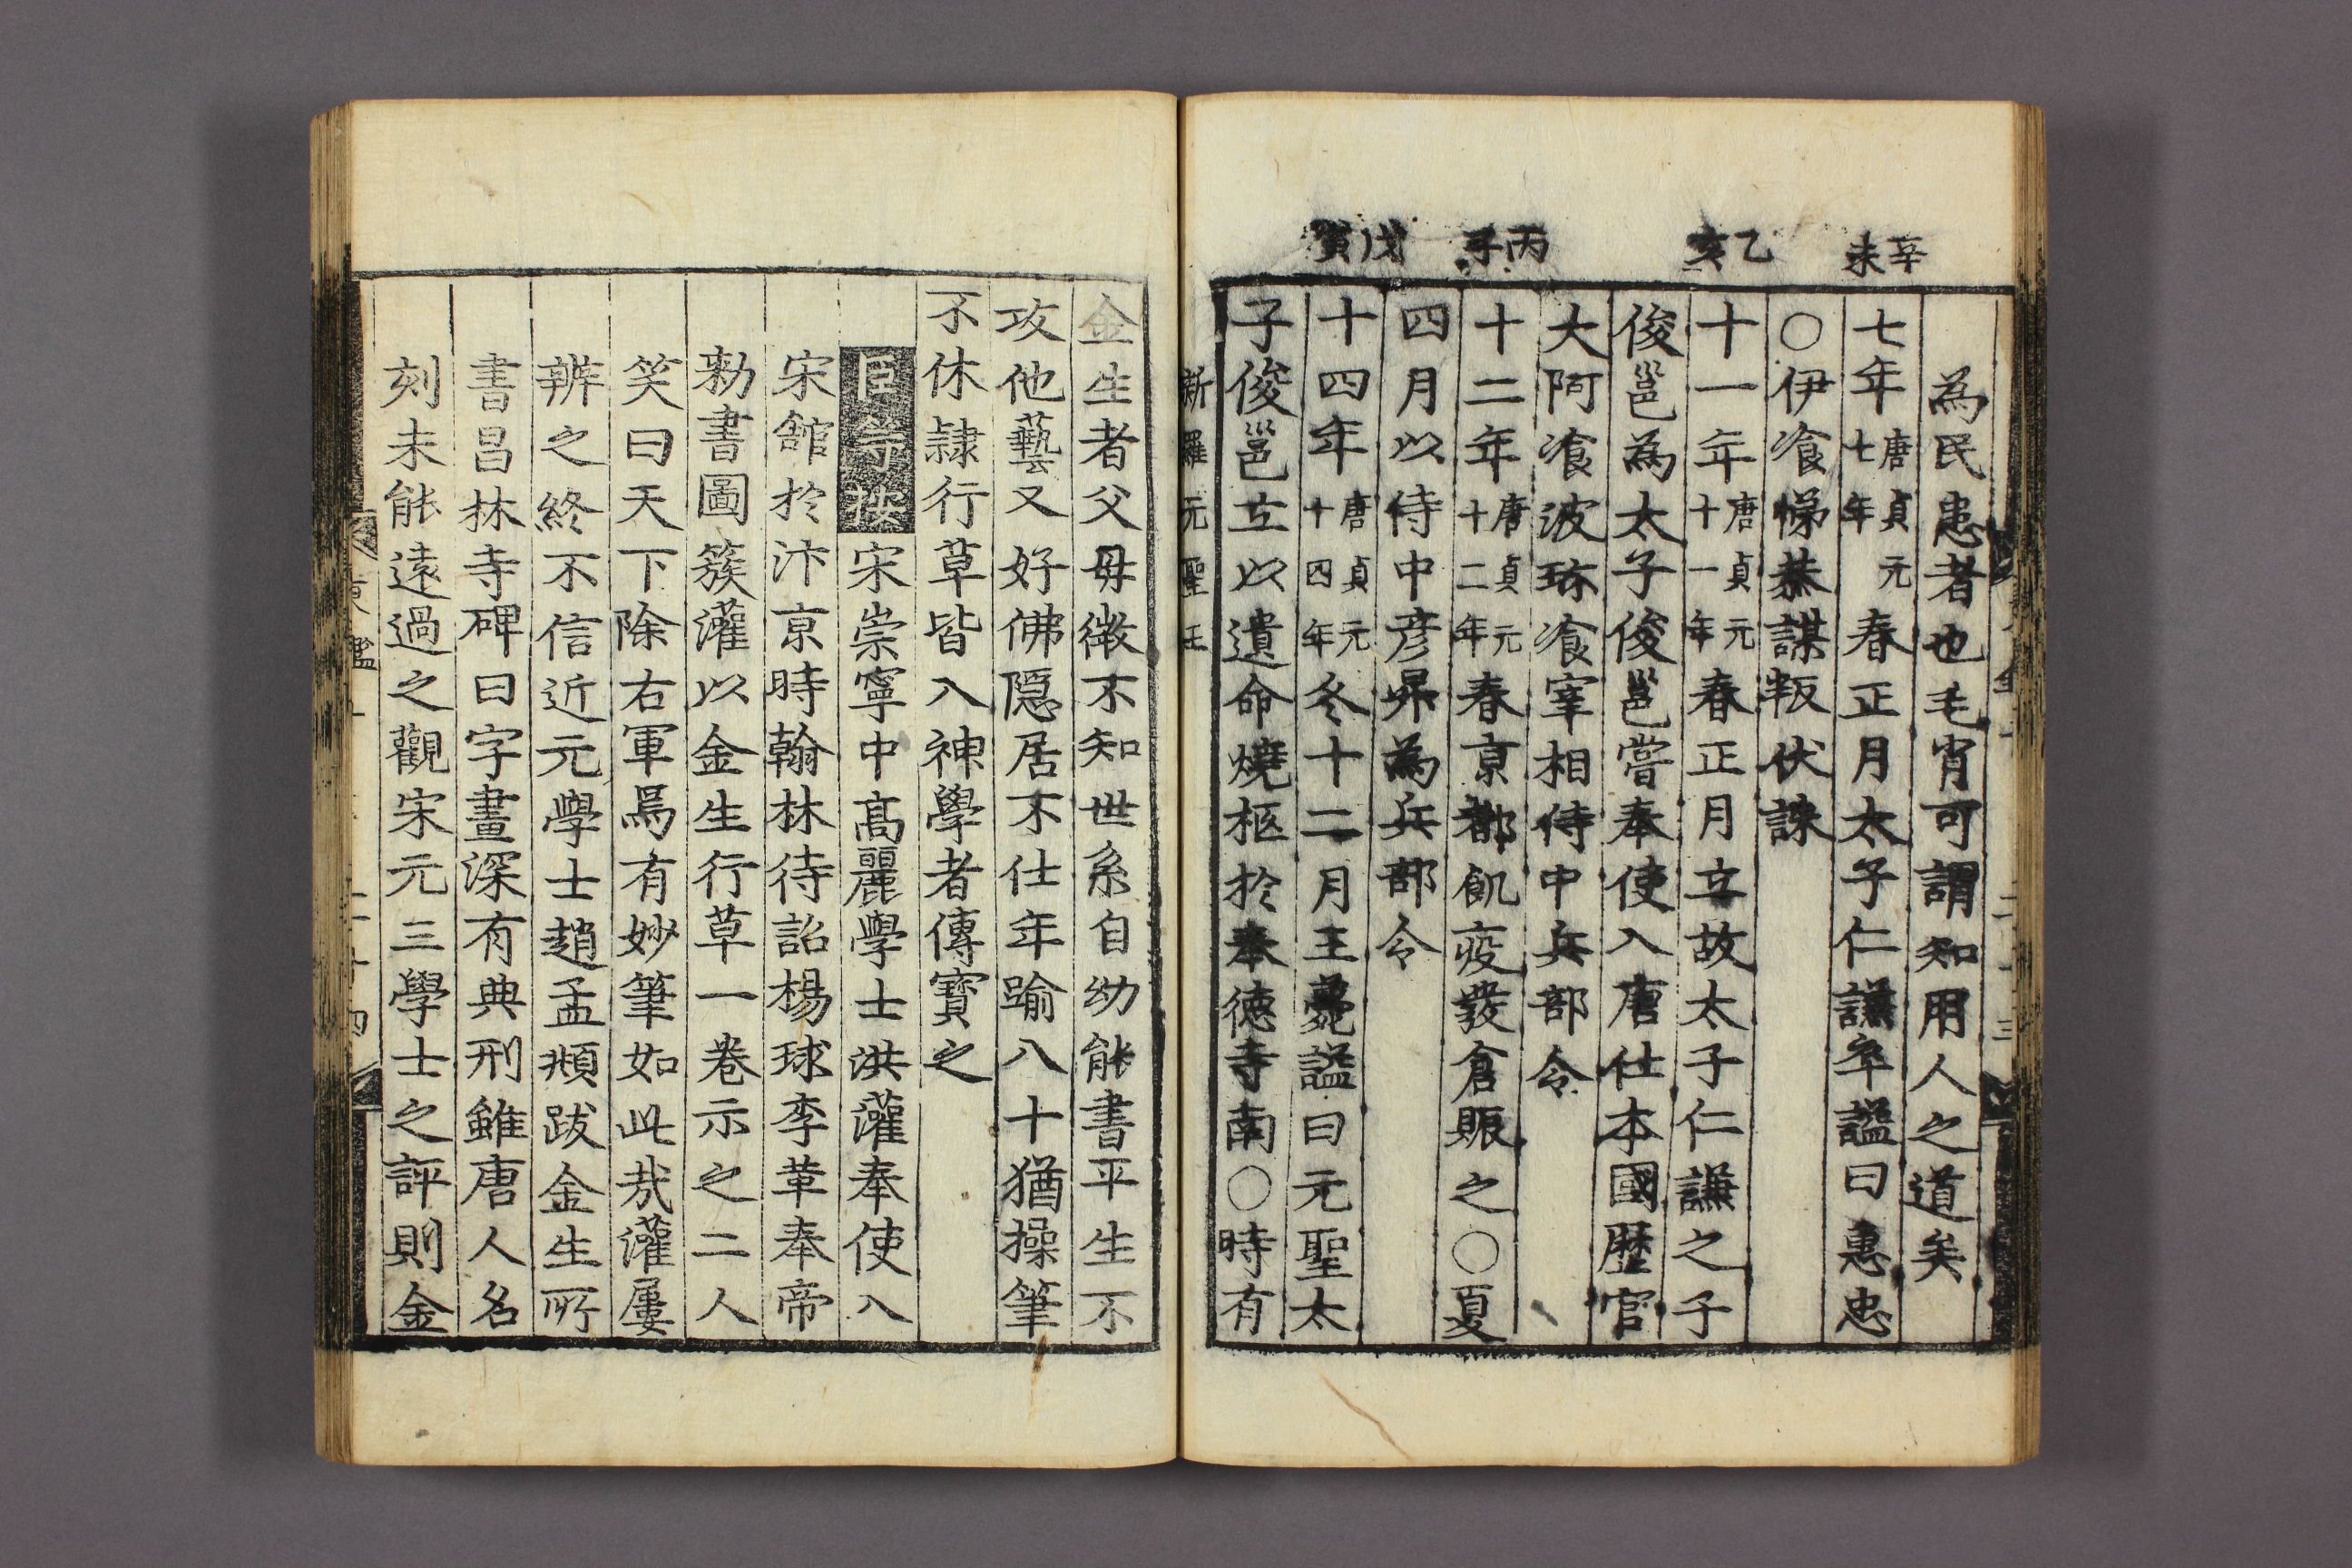 辛未
乙亥
丙子
戊寅
為民患者也毛宵可謂知用人之道矣
七年唐貞元七年春正月太子仁謙卒謚曰惠忠
○伊飡悌恭謀叛伏誅
十一年唐貞元十一年春正月立故太子仁謙之子
俊邕為太子俊邕嘗奉使入唐仕本國歷官
大阿飡波珎飡宰相侍中兵部令
十二年唐貞元十二年春京都飢疫發倉賑之○夏
四月以侍中彦昇為兵部令
十四年唐貞元十四年冬十二月王薨謚曰元聖太
子俊邕立以遺命燒柩於奉德寺南○時有
新羅元聖王
金生者父毋微不知世系自幼能書平生不
攻他藝又好佛隠居不仕年踰八十猶操筆
不休隷行草皆入神學者傳寶之
臣等按宋崇寧中髙麗學士洪灌奉使入
宋舘於汴京時翰林待詔楊球李革奉帝
勑書圖簇灌以金生行草一卷示之二人
笑曰天下除右軍焉有妙筆如此㦲灌屢
辨之終不信近元學士趙孟頫跋金生所
書昌林寺碑曰字畫深有典刑雖唐人名
刻未能遠過之觀宋元三學士之評則金